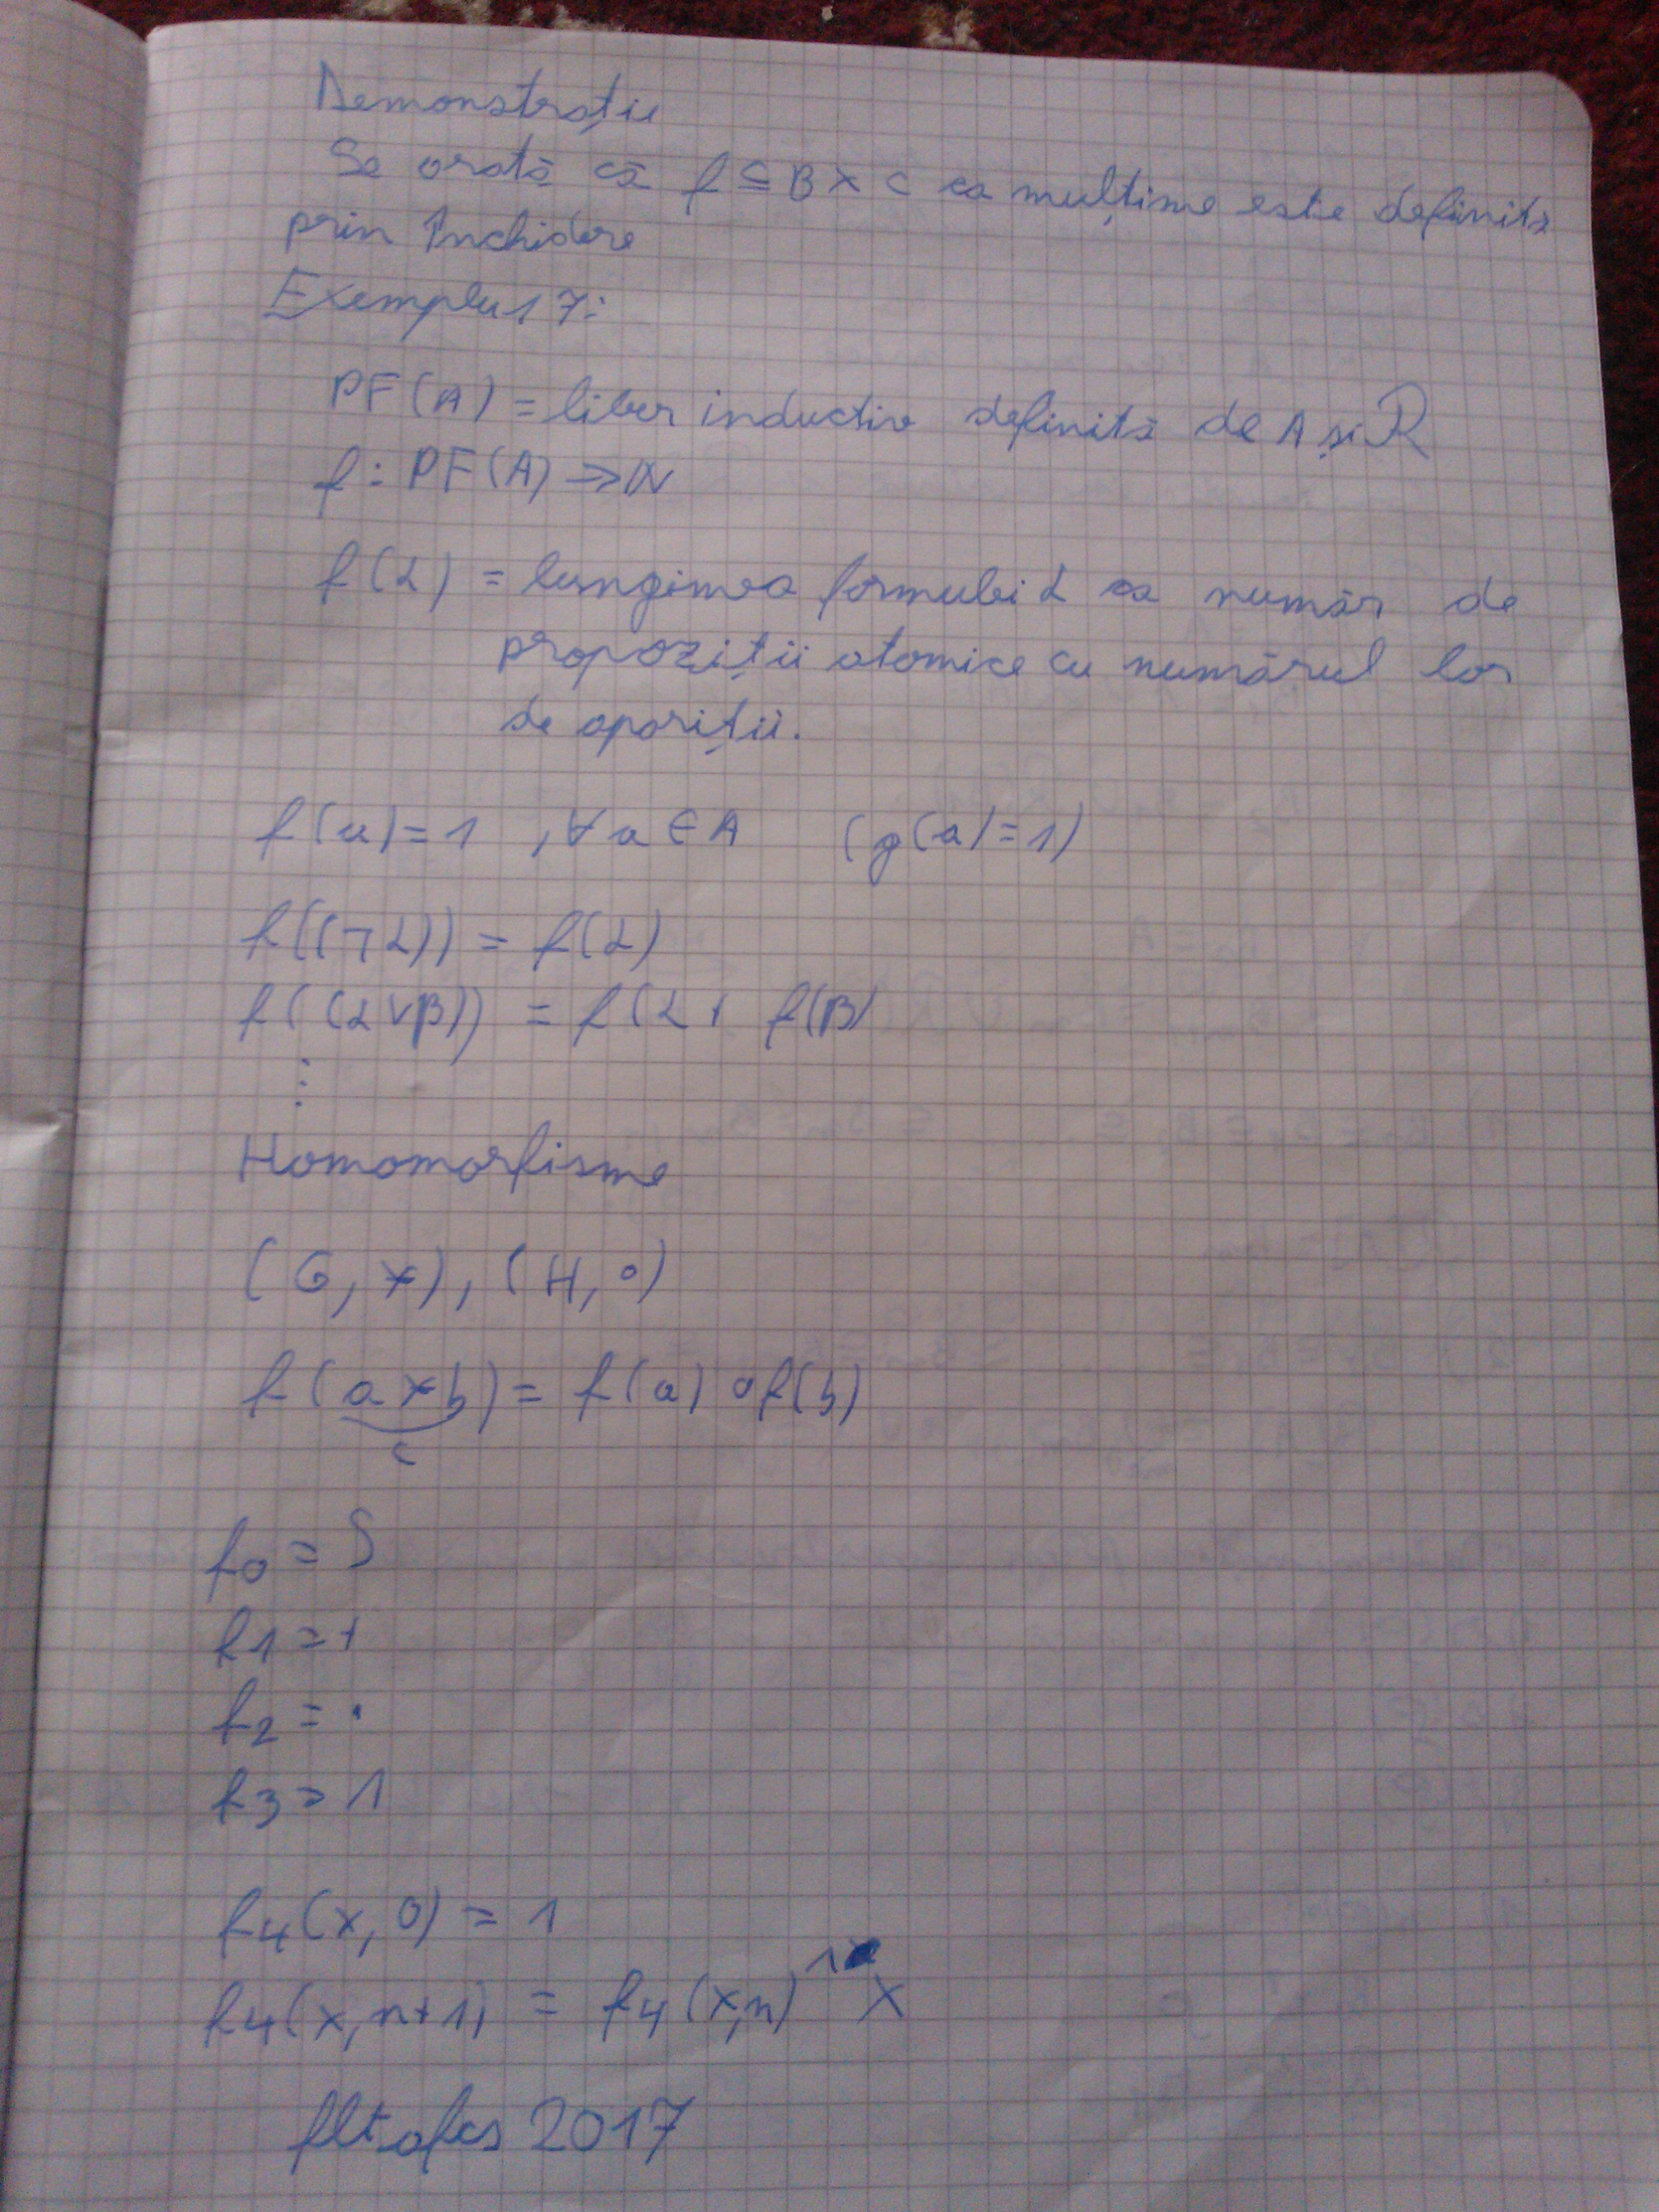 Demonstrație
Se arată că f ⊆ B × C ca mulțime este definită
prin închidere
Exemplu 17:
PF(A) = liber inductiv definită de A și R
f : PF(A) → ℕ
f(α) = lungimea formulei α ca număr de
propoziții atomice cu numărul lor
de apariții.
f(a) = 1 , ∀ a ∈ A (g(a) = 1)
f((¬α)) = f(α)
f((α∨β)) = f(α + f(β)
⋮
Homomorfisme
(G, *), (H, ∘)
f(a * b) = f(a) ∘ f(b)
c
f0 = S
f1 = +
f2 = ·
f3 = 1
f4(x, 0) = 1
f4(x, n+1) = f4(x, n) x
fltofcs 2017